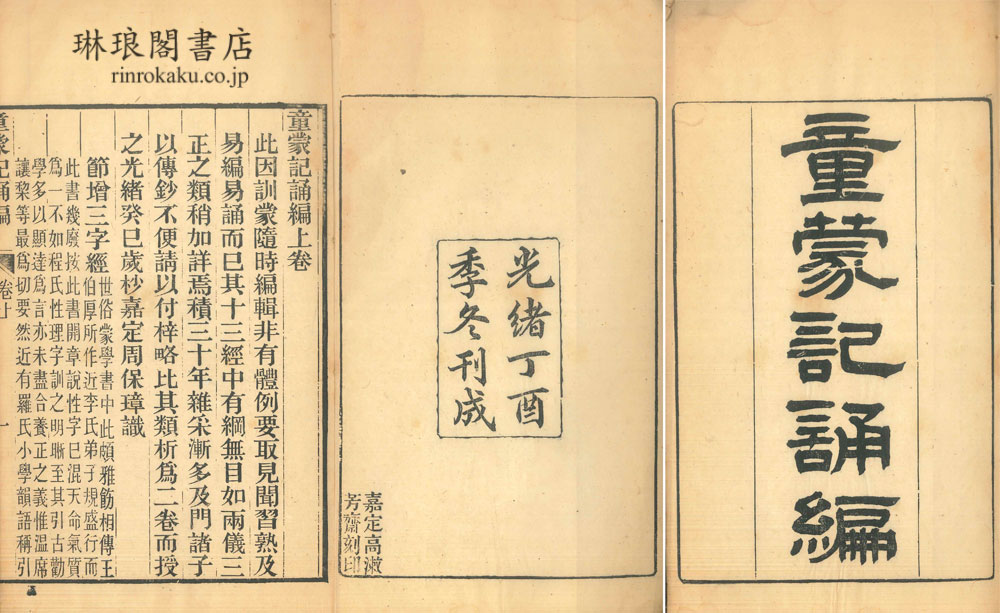 童蒙記誦編
光緒丁酉
季冬刊成
嘉定高漱
芳齋刻印
琳琅閣書店
rinrokaku.co.jp
童蒙記誦編上卷
此因訓蒙隨時編輯非有體例要取見聞習熟及
易編易誦而已其十三經中有綱無目如兩儀三
正之類稍加詳焉積三十年雜采漸多及門諸子
以傳鈔不便請以付梓略比其類析爲二卷而授
之光緒癸巳歲杪嘉定周保璋識
節增三字經世俗蒙學書中此頗雅飭相傳王
伯厚所作近李氏弟子規盛行而
此書幾廢按此書開章說性字巳混天命氣質
爲一不如程氏性理字訓之明晰至其引古勸
學多以顯達爲言亦未盡合養正之義惟温席
讓黎等最爲切要然近有羅氏小學韻語稱引
童蒙記誦編
卷上
一